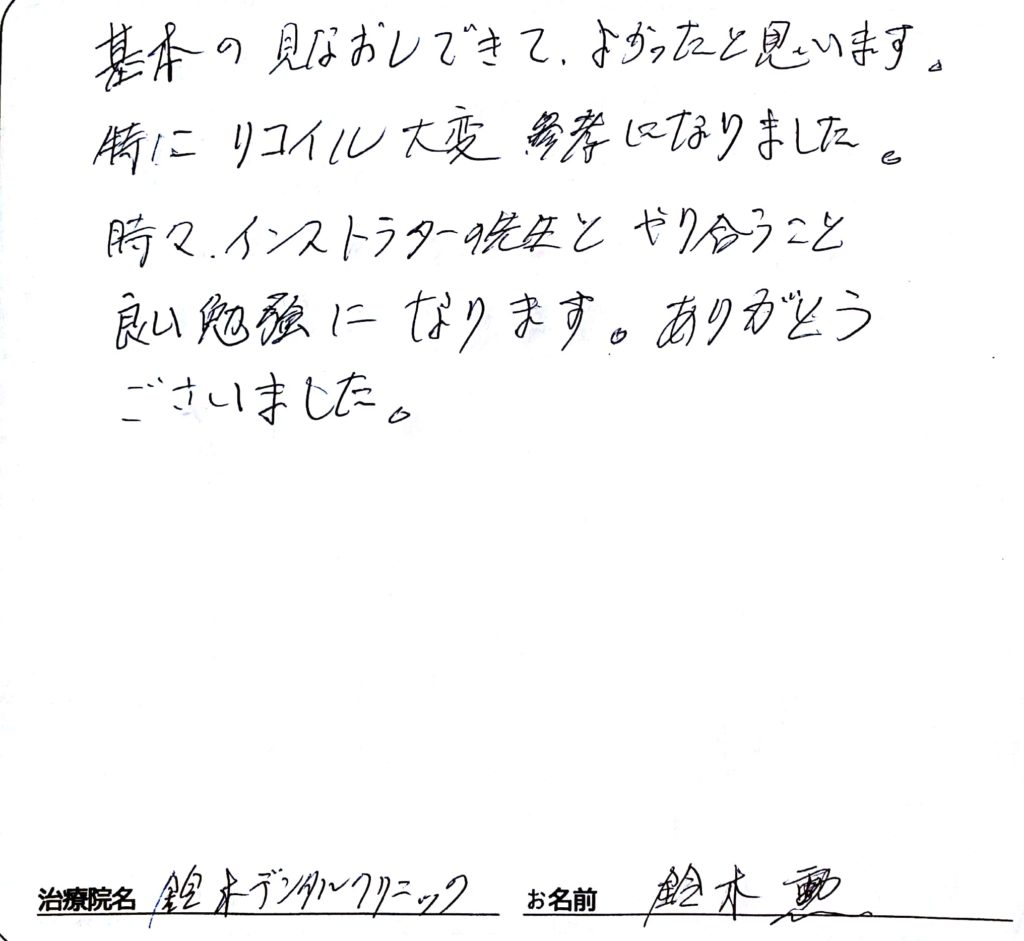 基本の見なおしできて、よかったと思います。
特にリコイル大変参考になりました。
時々、インストラクターの先生とやり合うこと
良い勉強になります。ありがとう
ございました。
治療院名 鈴木デンタルクリニック お名前 鈴木 勲